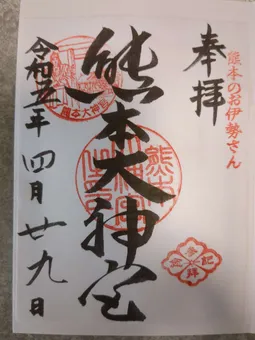 熊本のお伊勢さん
奉拝
熊本大神宮
令和五年四月廿九日
熊本大神宮
参拝記念